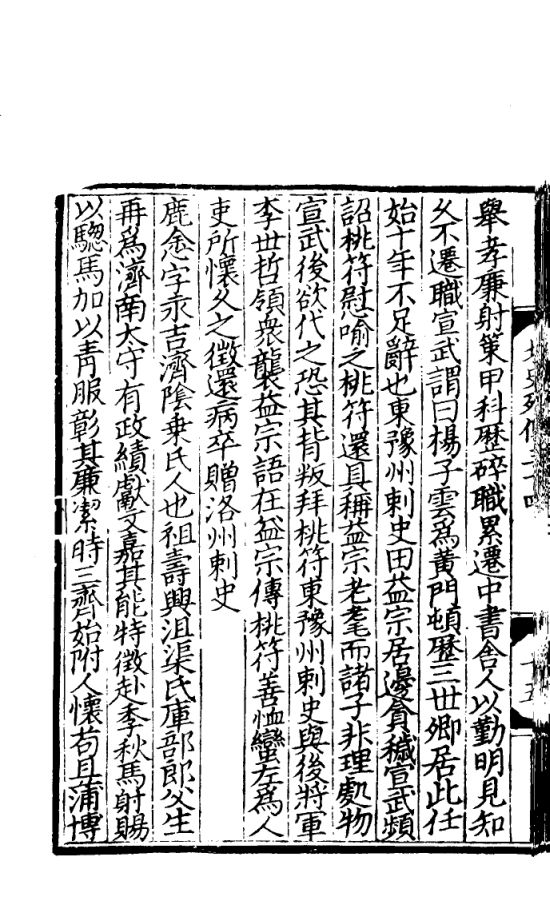 舉孝廉射策甲科歷碎職累遷中書舍人以勤明見知
久不遷職宣武謂曰楊子雲爲黃門頓歷三世卿居此任
始十年不足辭也東豫州刺史田益宗居邊貪穢宣武頻
詔桃符慰喻之桃符還具稱益宗老耄而諸子非理處物
宣武後欲代之恐其背叛拜桃符東豫州刺史與後將軍
李世哲領衆襲益宗語在益宗傳桃符善恤蠻左爲人
吏所懷久之徵還病卒贈洛州刺史
鹿悆字永吉濟陰乗氏人也祖壽興沮渠氏庫部郎父生
再爲濟南太守有政績獻文嘉其能特徵赴季秋馬射賜
以驄馬加以青服彰其廉潔時三齊始附人懷苟且蒲博